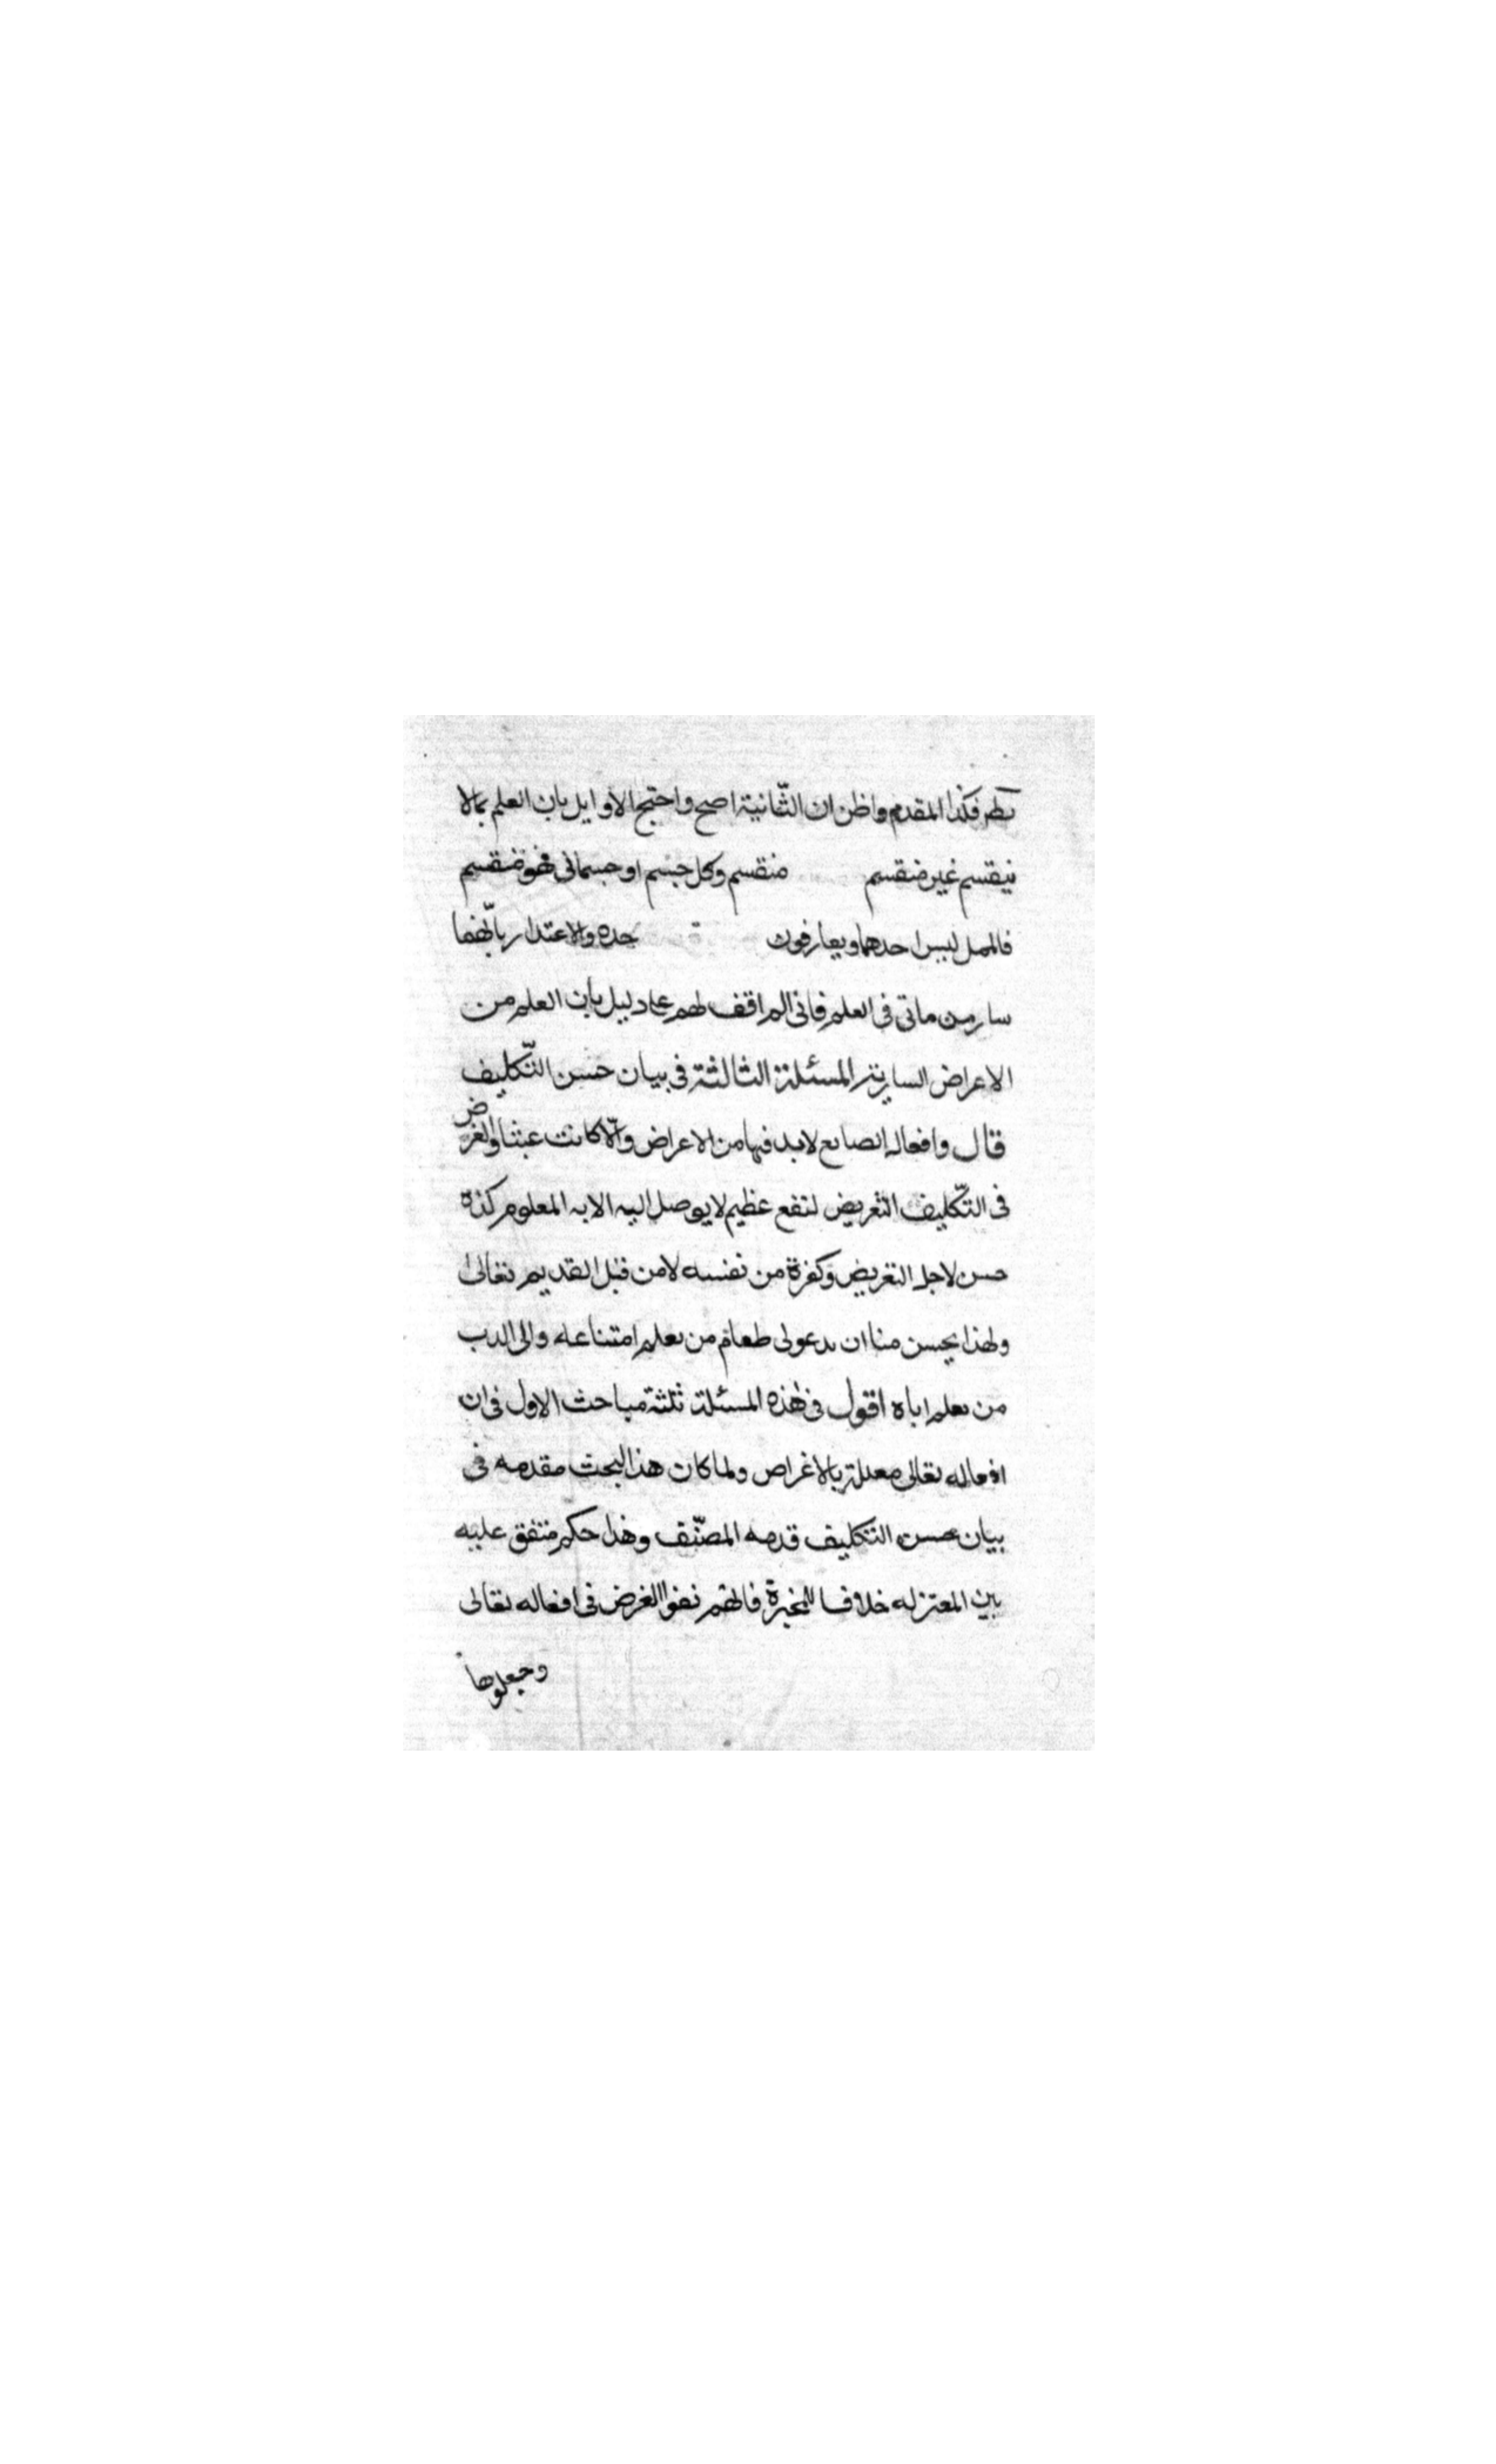 فكذا المقدم واظن ان الثّانية اصح واحتج الاوايل بان العلم بمالا
ينقسم غير منقسم منقسم وكل جسم او جسمانى فهو منقسم
فالمحل ليس احدهما ويعارفون حده والاعتدار بانّهما
سار من ماتى فى العلم فانى الم اقف لهم على دليل بان العلم من
الاعراض السارية المسئلة الثالثة فى بيان حسن التّكليف
قال وافعال الصانع لابد فيها من الاعراض والّا كانت عبثا والغرض
فى التّكليف التعريض لنفع عظيم لا يوصل اليه الا به المعلوم كفره
حسن لاجل التعريض وكفرة من نفسه لا من قبل القديم تعالى
ولهذا يحسن منا ان يدعو لى طعام من يعلم امتناعه والى الدب
من يعلم اباه اقول فى هذه المسئلة ثلثة مباحث الاول فى ان
افعاله تعالى معللة بالاغراض ولما كان هذا البحث مقدمه فى
بيان حسن التكليف قدمه المصنّف وهذا حكم متفق عليه
بين المعتزله خلافا للمجبرة فانهم نفوا الغرض فى افعاله تعالى
وجعلوها